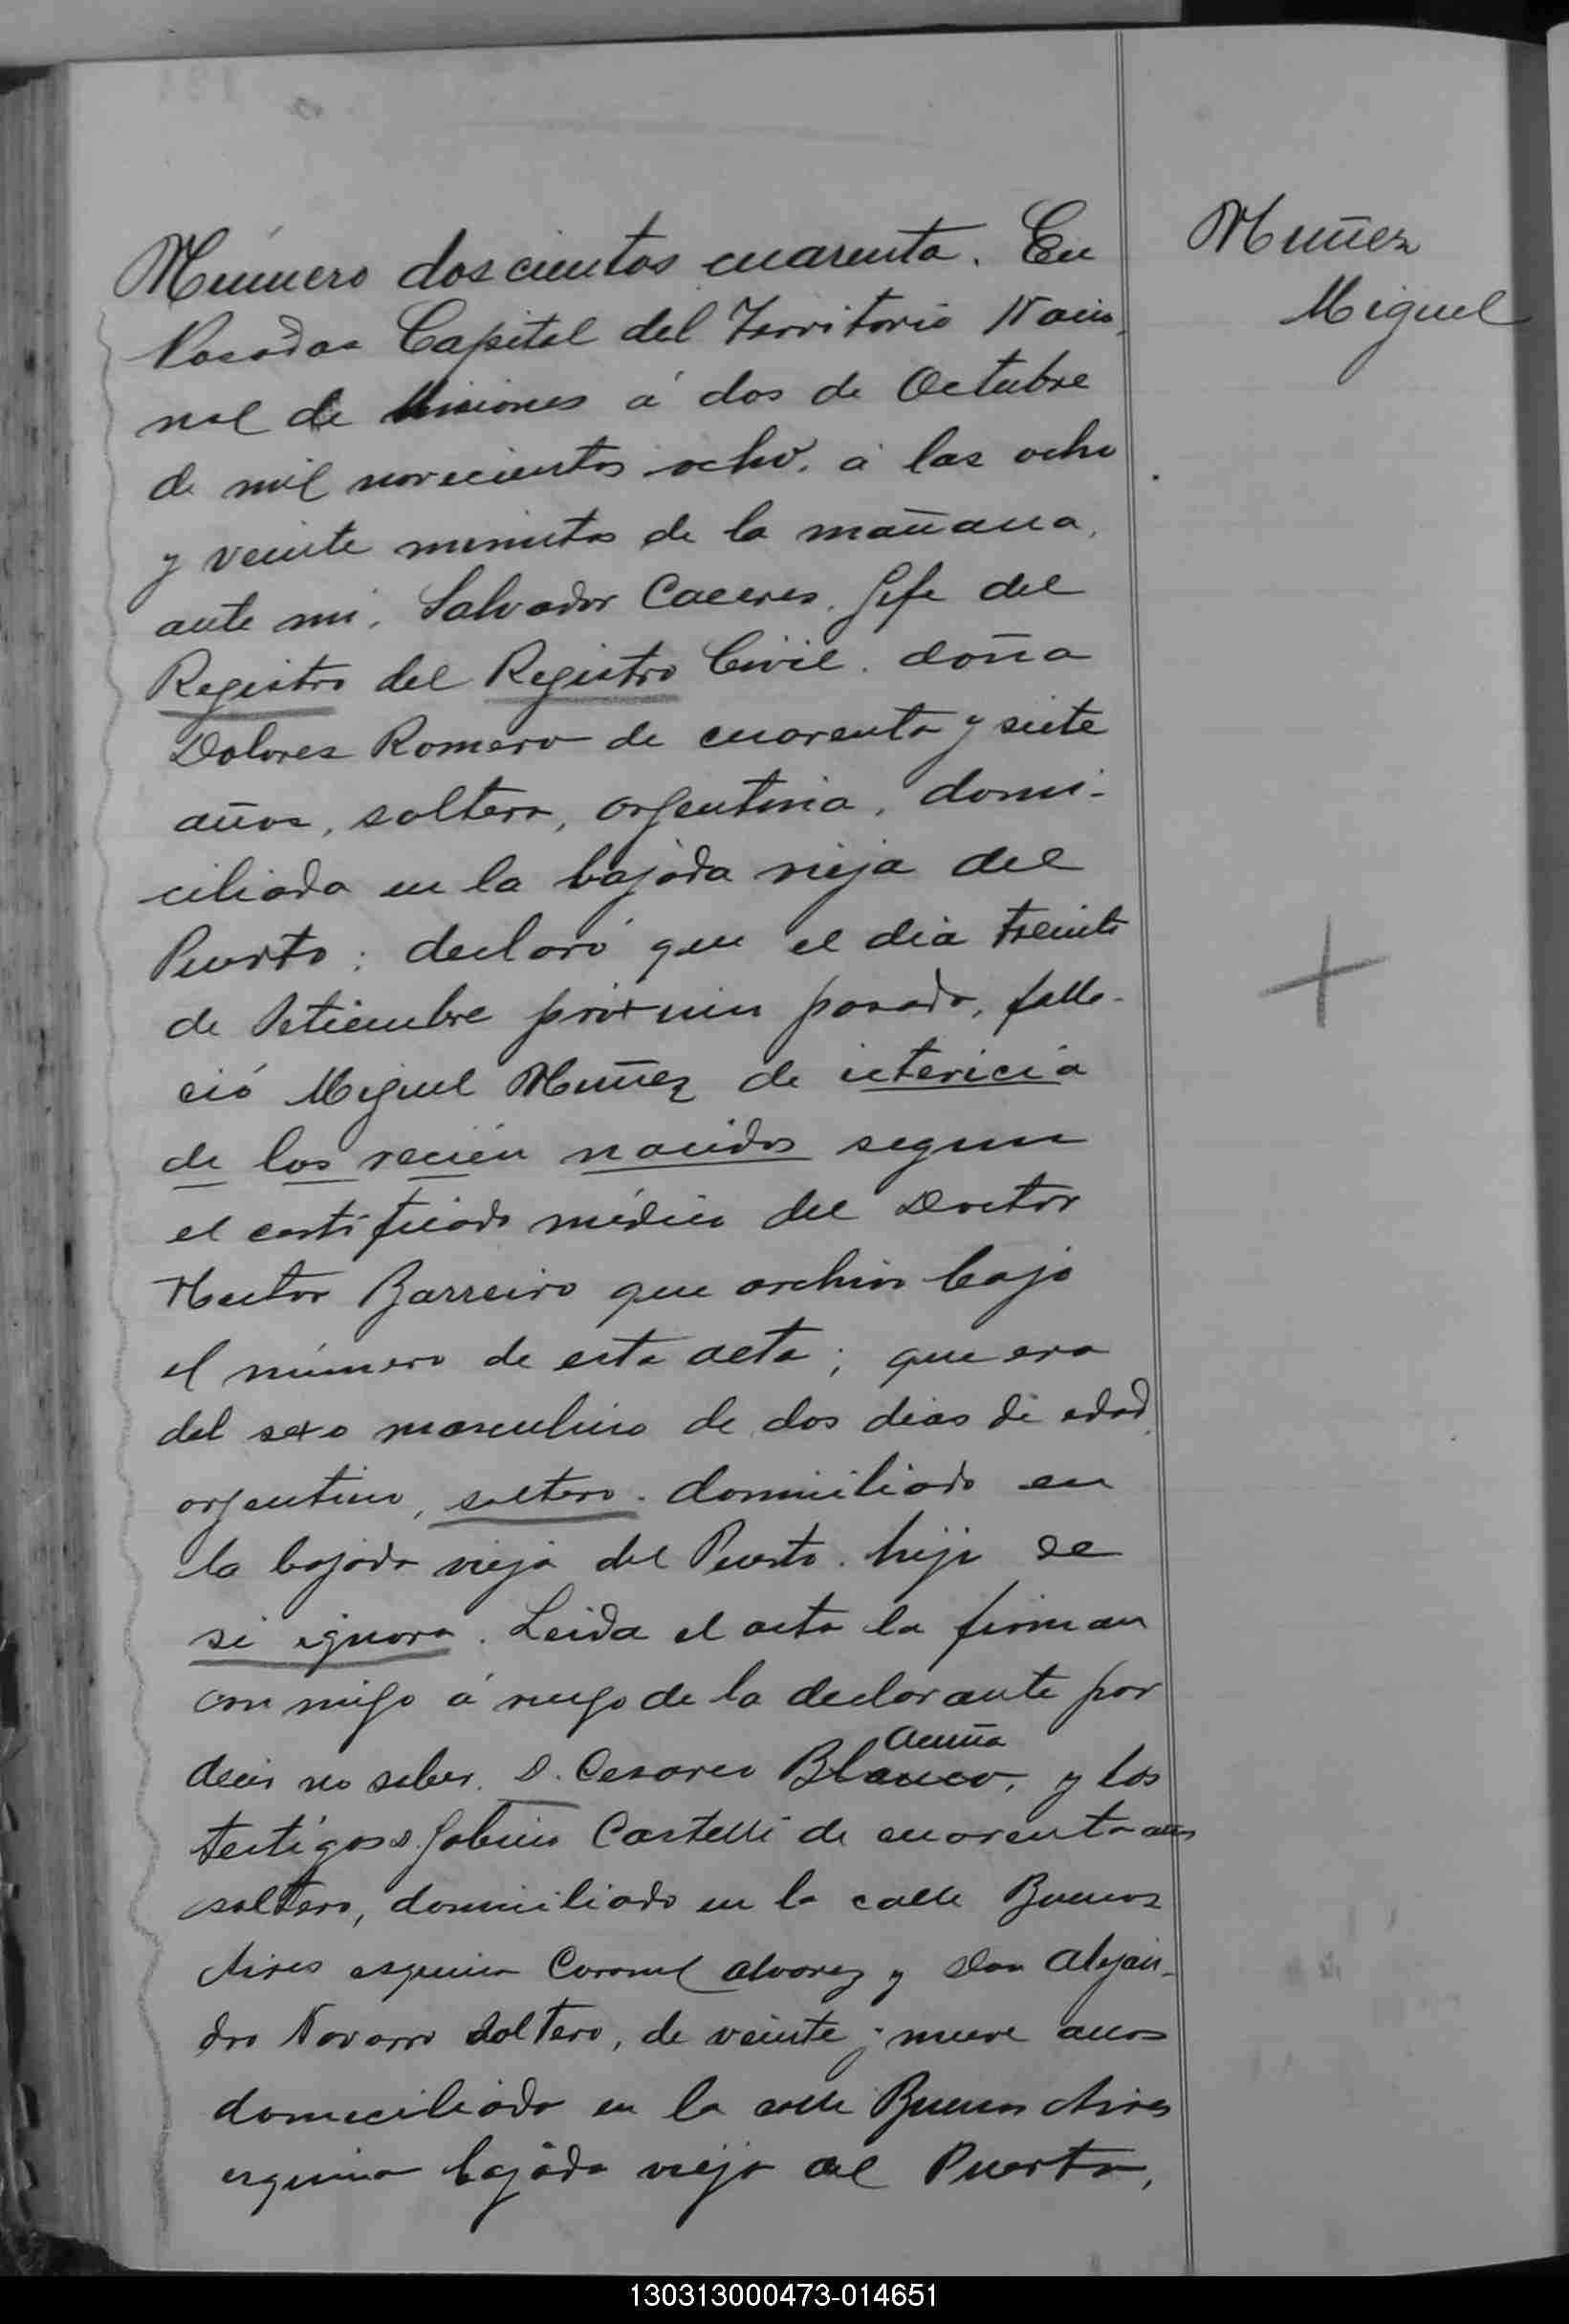 Número doscientos cuarenta. En
Posadas Capital del Territorio Nacio-
nal de Misiones á dos de Octubre
de mil novecientos ocho, á las ocho
y veinte minutos de la mañana,
ante mi, Salvador Caceres, Gefe del
Registro del Registro Civil, doña
Dolores Romero de cuarenta y siete
años, soltera, argentina, domi-
ciliada en la bajada vieja del
Puerto: declaró que el dia treinta
de Setiembre próximo pasado, falle-
ció Miguel Muñez de ictericia
de los recién nacidos segun
el certificado médico del Doctor
Hector Barreiro que archivo bajo
el número de esta acta; que era
del sexo masculino de dos dias de edad,
argentino, soltero, domiciliado en
la bajada vieja del Puerto, hijo se
se ignora. Leida el acta la firman
conmigo á ruego de la declarante por
decir no saber, D. Cesareo Blanco, y los
Acuña
testigos D. Gabino Castelli de cuarenta años
soltero, domiciliado en la calle Buenos
Aires esquina Coronel Alvarez y Don Alejan-
dro Navarro soltero, de veinte y nueve años
domiciliado en la calle Buenos Aires
esquina bajada vieja del Puerto,
Muñez
Miguel
130313000473-014651